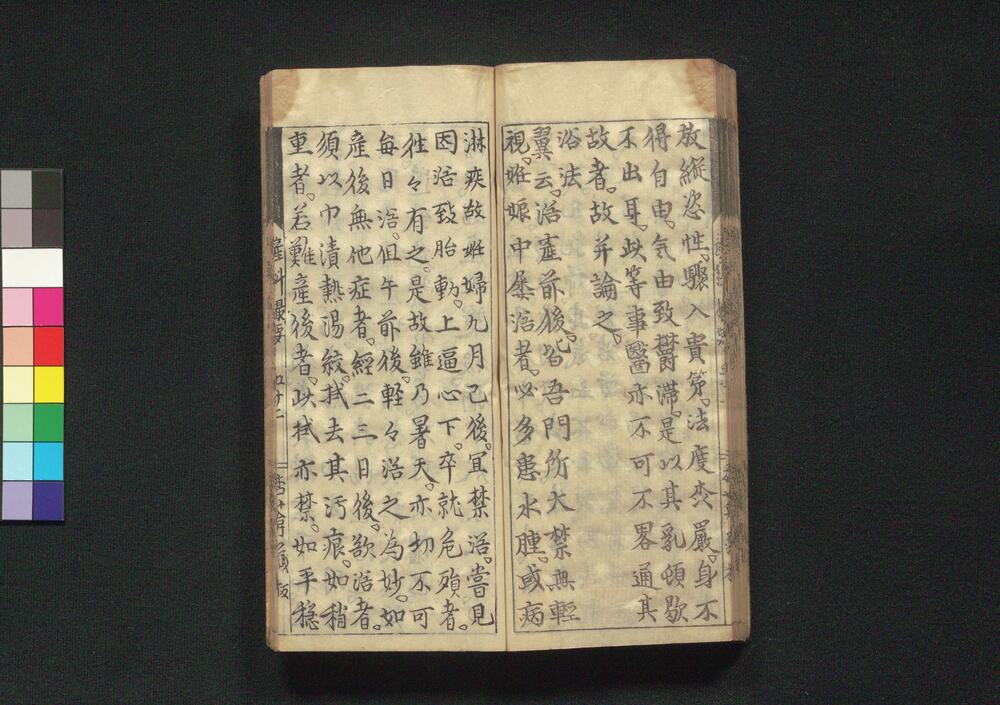 放縱恣性。驟入貴第。法度森嚴。身不
得自由。気由致欝滞。是以其乳頓歇
不出耳。此等事醫亦不可不畧通其
故者。故并論之。
浴法
翼云。浴產前後。皆吾門所大禁。無輕
視。妊娠中屡浴者。必多患水腫。或病
淋疾故妊婦九月已後。冝禁浴。嘗見
因浴致胎動。上逼心下。卒就危殆者。
往々有之。是故雖乃暑天。亦切不可
毎日浴。但午前後。軽々浴之為妙。如
産後無他症者。經二三日後。欲浴者。
須以巾漬熱湯絞。拭去其汚痕。如稍
重者。若難産後者。此拭亦禁。如平穏
產科撮要
廿二
藏板